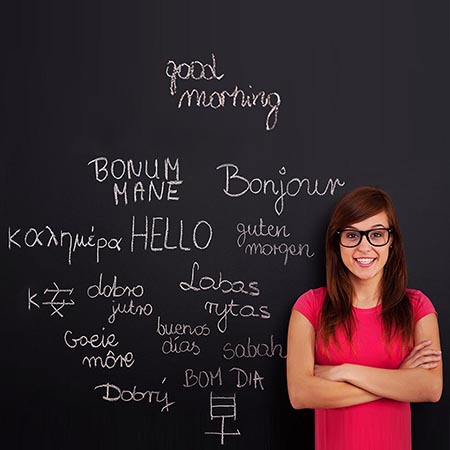 good
morning
BONUM
MANE
Bonjour
καλημέρα
HELLO
guten
morgen
dobro
jutro
Labas
rytas
Goeie
môre
buenos
días
sabah
BOM DIA
Dobrý